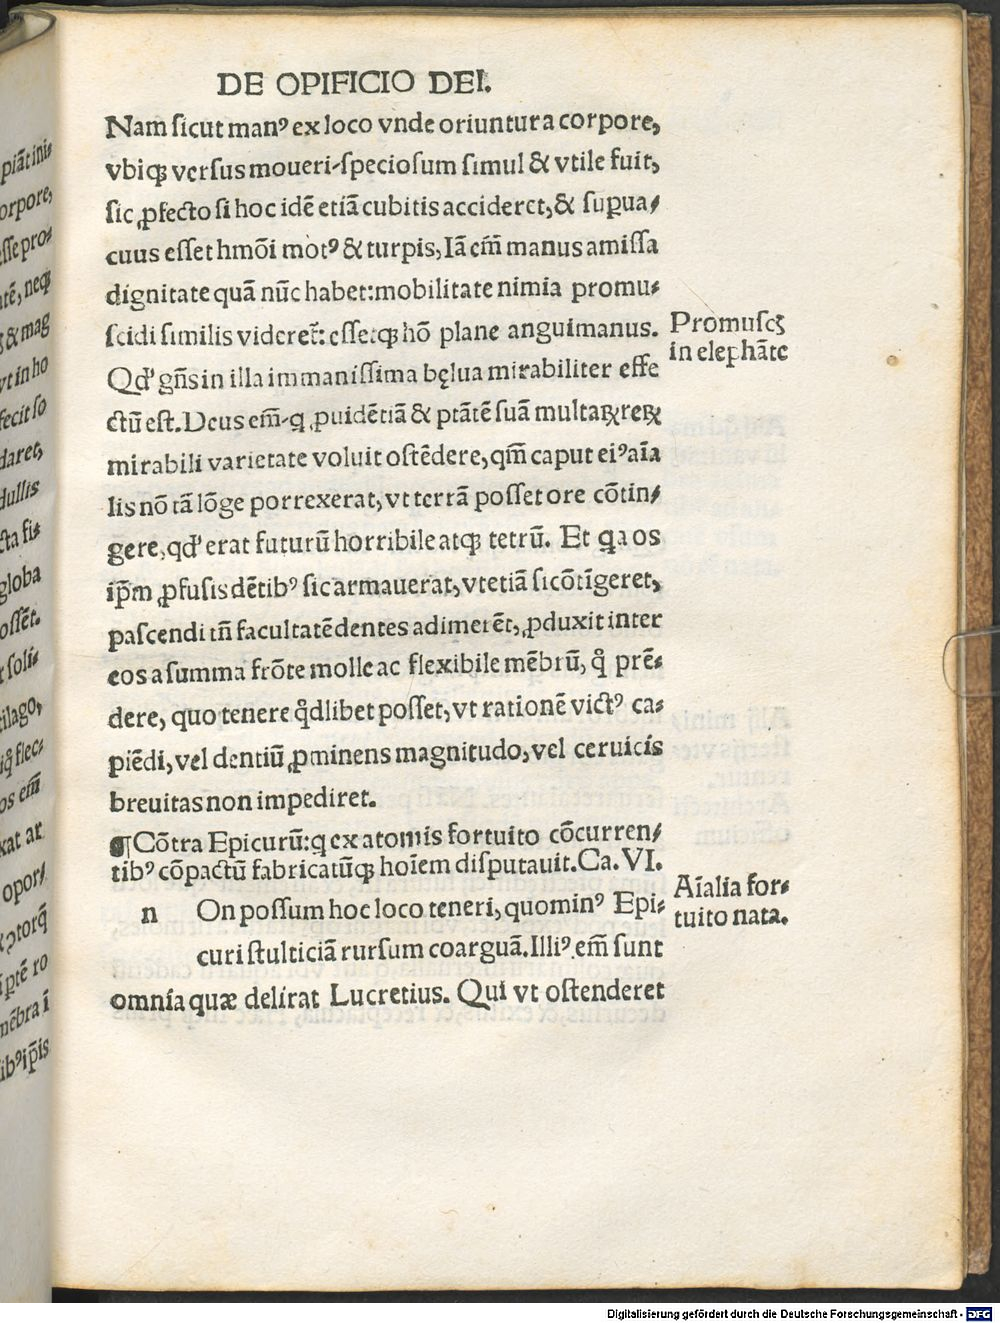 DE OPIFICIO DEI.
Nam ſicut manꝰ ex loco vnde oriuntur a corpore,
vbiqꝫ verſus moueri-ſpecioſum ſimul & vtile fuit,
ſic ꝓfecto ſi hoc idē etiā cubitis accideret, & ſupua⸗
cuus eſſet hmōi motꝰ & turpis, Iā em̄ manus amiſſa
dignitate quā nūc habet: mobilitate nimia promu⸗
ſcidi ſimilis videret̄: eſſetqꝫ hō plane anguimanus.
Promuſcꝫ
in elephāte
Qđ gn̄s in illa immaniſſima bęlua mirabiliter effe
ctū eſt. Deus em̄-q ꝓuidētiā & ptātē ſuā multaꝝ reꝝ
mirabili varietate voluit oſtēdere, qm̄ caput eiꝰ aīa
lis nō tā lōge porrexerat, vt terrā poſſet ore cōtin⸗
gere, qđ erat futurū horribile atqꝫ tetrū. Et qa os
ip̄m ꝓfuſis dētibꝰ ſic armauerat, vt etiā ſi cōtīgeret,
paſcendi tn̄ facultatē dentes adimerēt, ꝓduxit inter
eos a ſumma frōte molle ac flexibile mēbrū, q̊ prē⸗
dere, quo tenere q̊dlibet poſſet, vt rationē victꝰ ca⸗
piēdi, vel dentiū ꝓminens magnitudo, vel ceruicis
breuitas non impediret.
¶ Cōtra Epicurū: q ex atomis fortuito cōcurren⸗
tibꝰ cōpactū fabricatūqꝫ hoīem diſputauit. Ca. VI.
n On poſſum hoc loco teneri, quominꝰ Epi⸗
curi ſtulticiā rurſum coarguā. Illiꝰ em̄ ſunt
omnia quæ delirat Lucretius. Qui vt oſtenderet
Aīalia for⸗
tuito nata.
piāt ini⸗
orpore,
eſſe pro⸗
tē, neqꝫ
& mag
vt in ho
fecit ſo
daret,
dullis
cta fi⸗
globa
oſſēt.
ſoli⸗
tilago,
flec⸗
os em̄
xat at
opor⸗
ro
mēbra ī
ibꝰ ip̄is
Digitalisierung gefördert durch die Deutsche Forschungsgemeinschaft - DFG